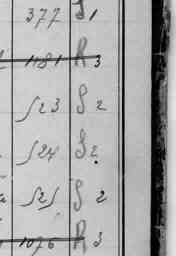 377 S 1
1181 R 3
523 S 2
524 S 2.
525 S 2
1076 R 3